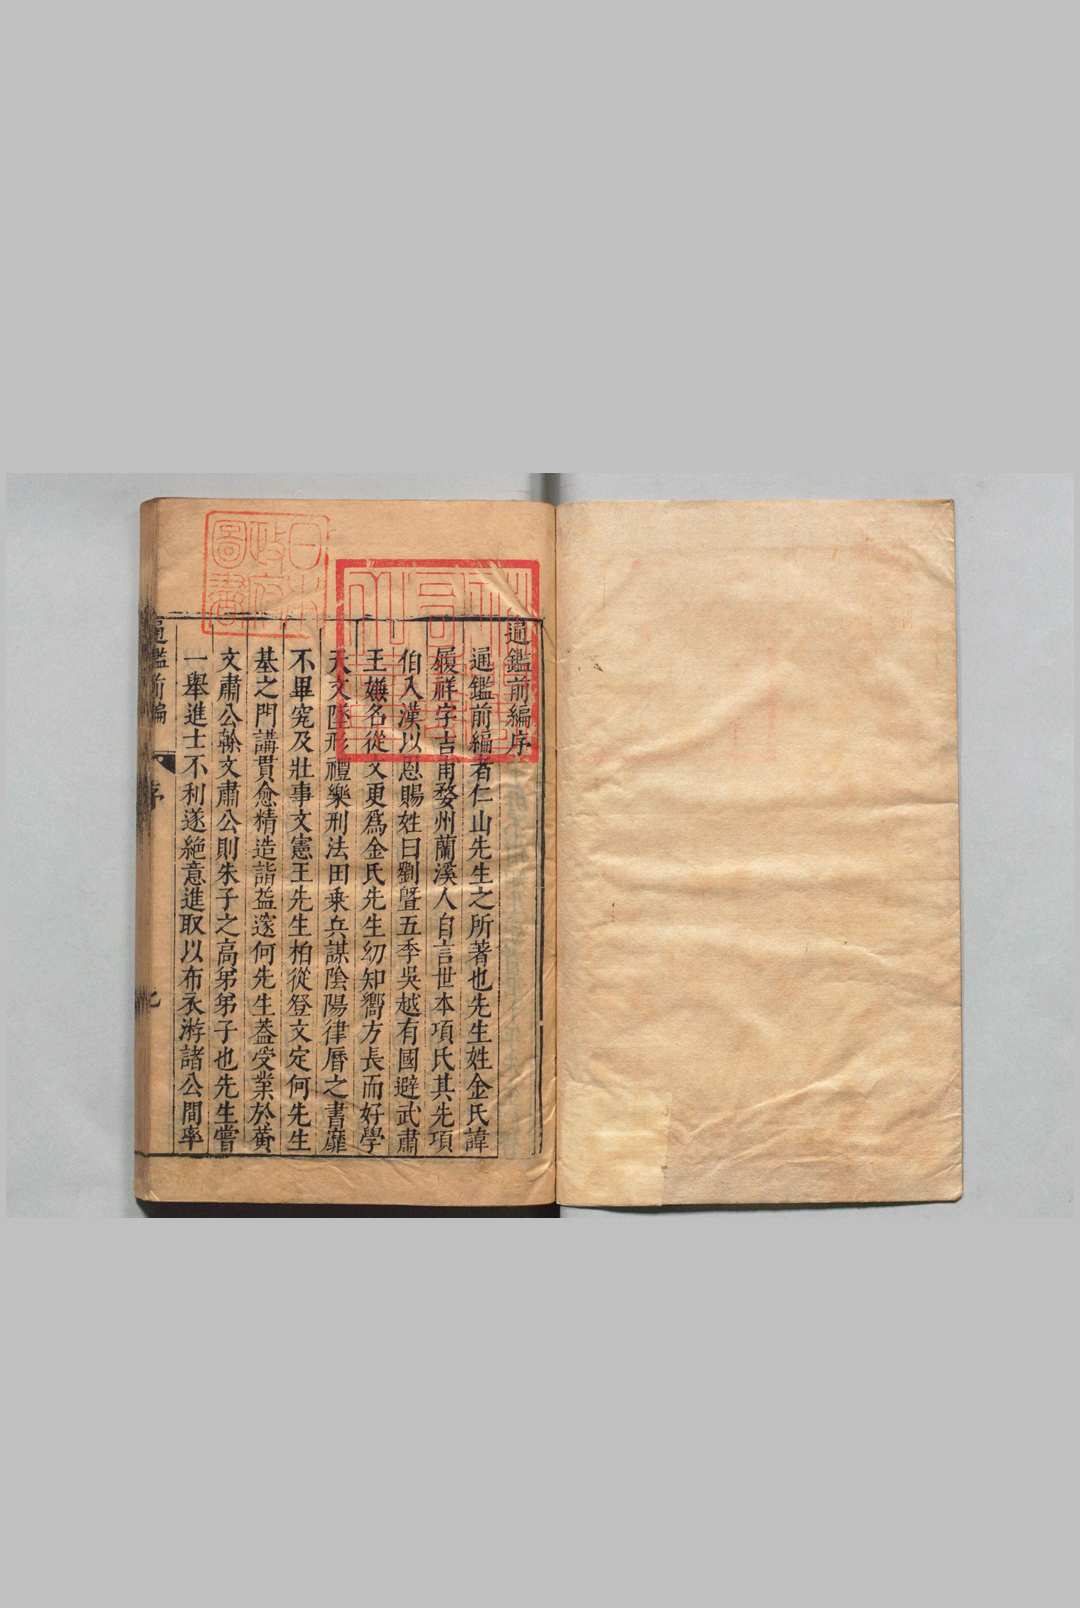 通鑑前編序
通鑑前編者仁山先生之所著也先生姓金氏諱
履祥字吉甫婺州蘭溪人自言世本項氏其先項
伯入漢以恩賜姓曰劉曁五季吳越有國避武肅
王嫌名從文更爲金氏先生幼知嚮方長而好學
天文墜形禮樂刑法田乗兵謀陰陽律曆之書靡
不畢究及壯事文憲王先生柏從登文定何先生
基之門講貫愈精造詣益邃何先生蓋受業於黃
文肅公榦文肅公則朱子之高弟弟子也先生嘗
一舉進士不利遂絶意進取以布衣游諸公間率
通鑑前編
序
日本
政府
圖書